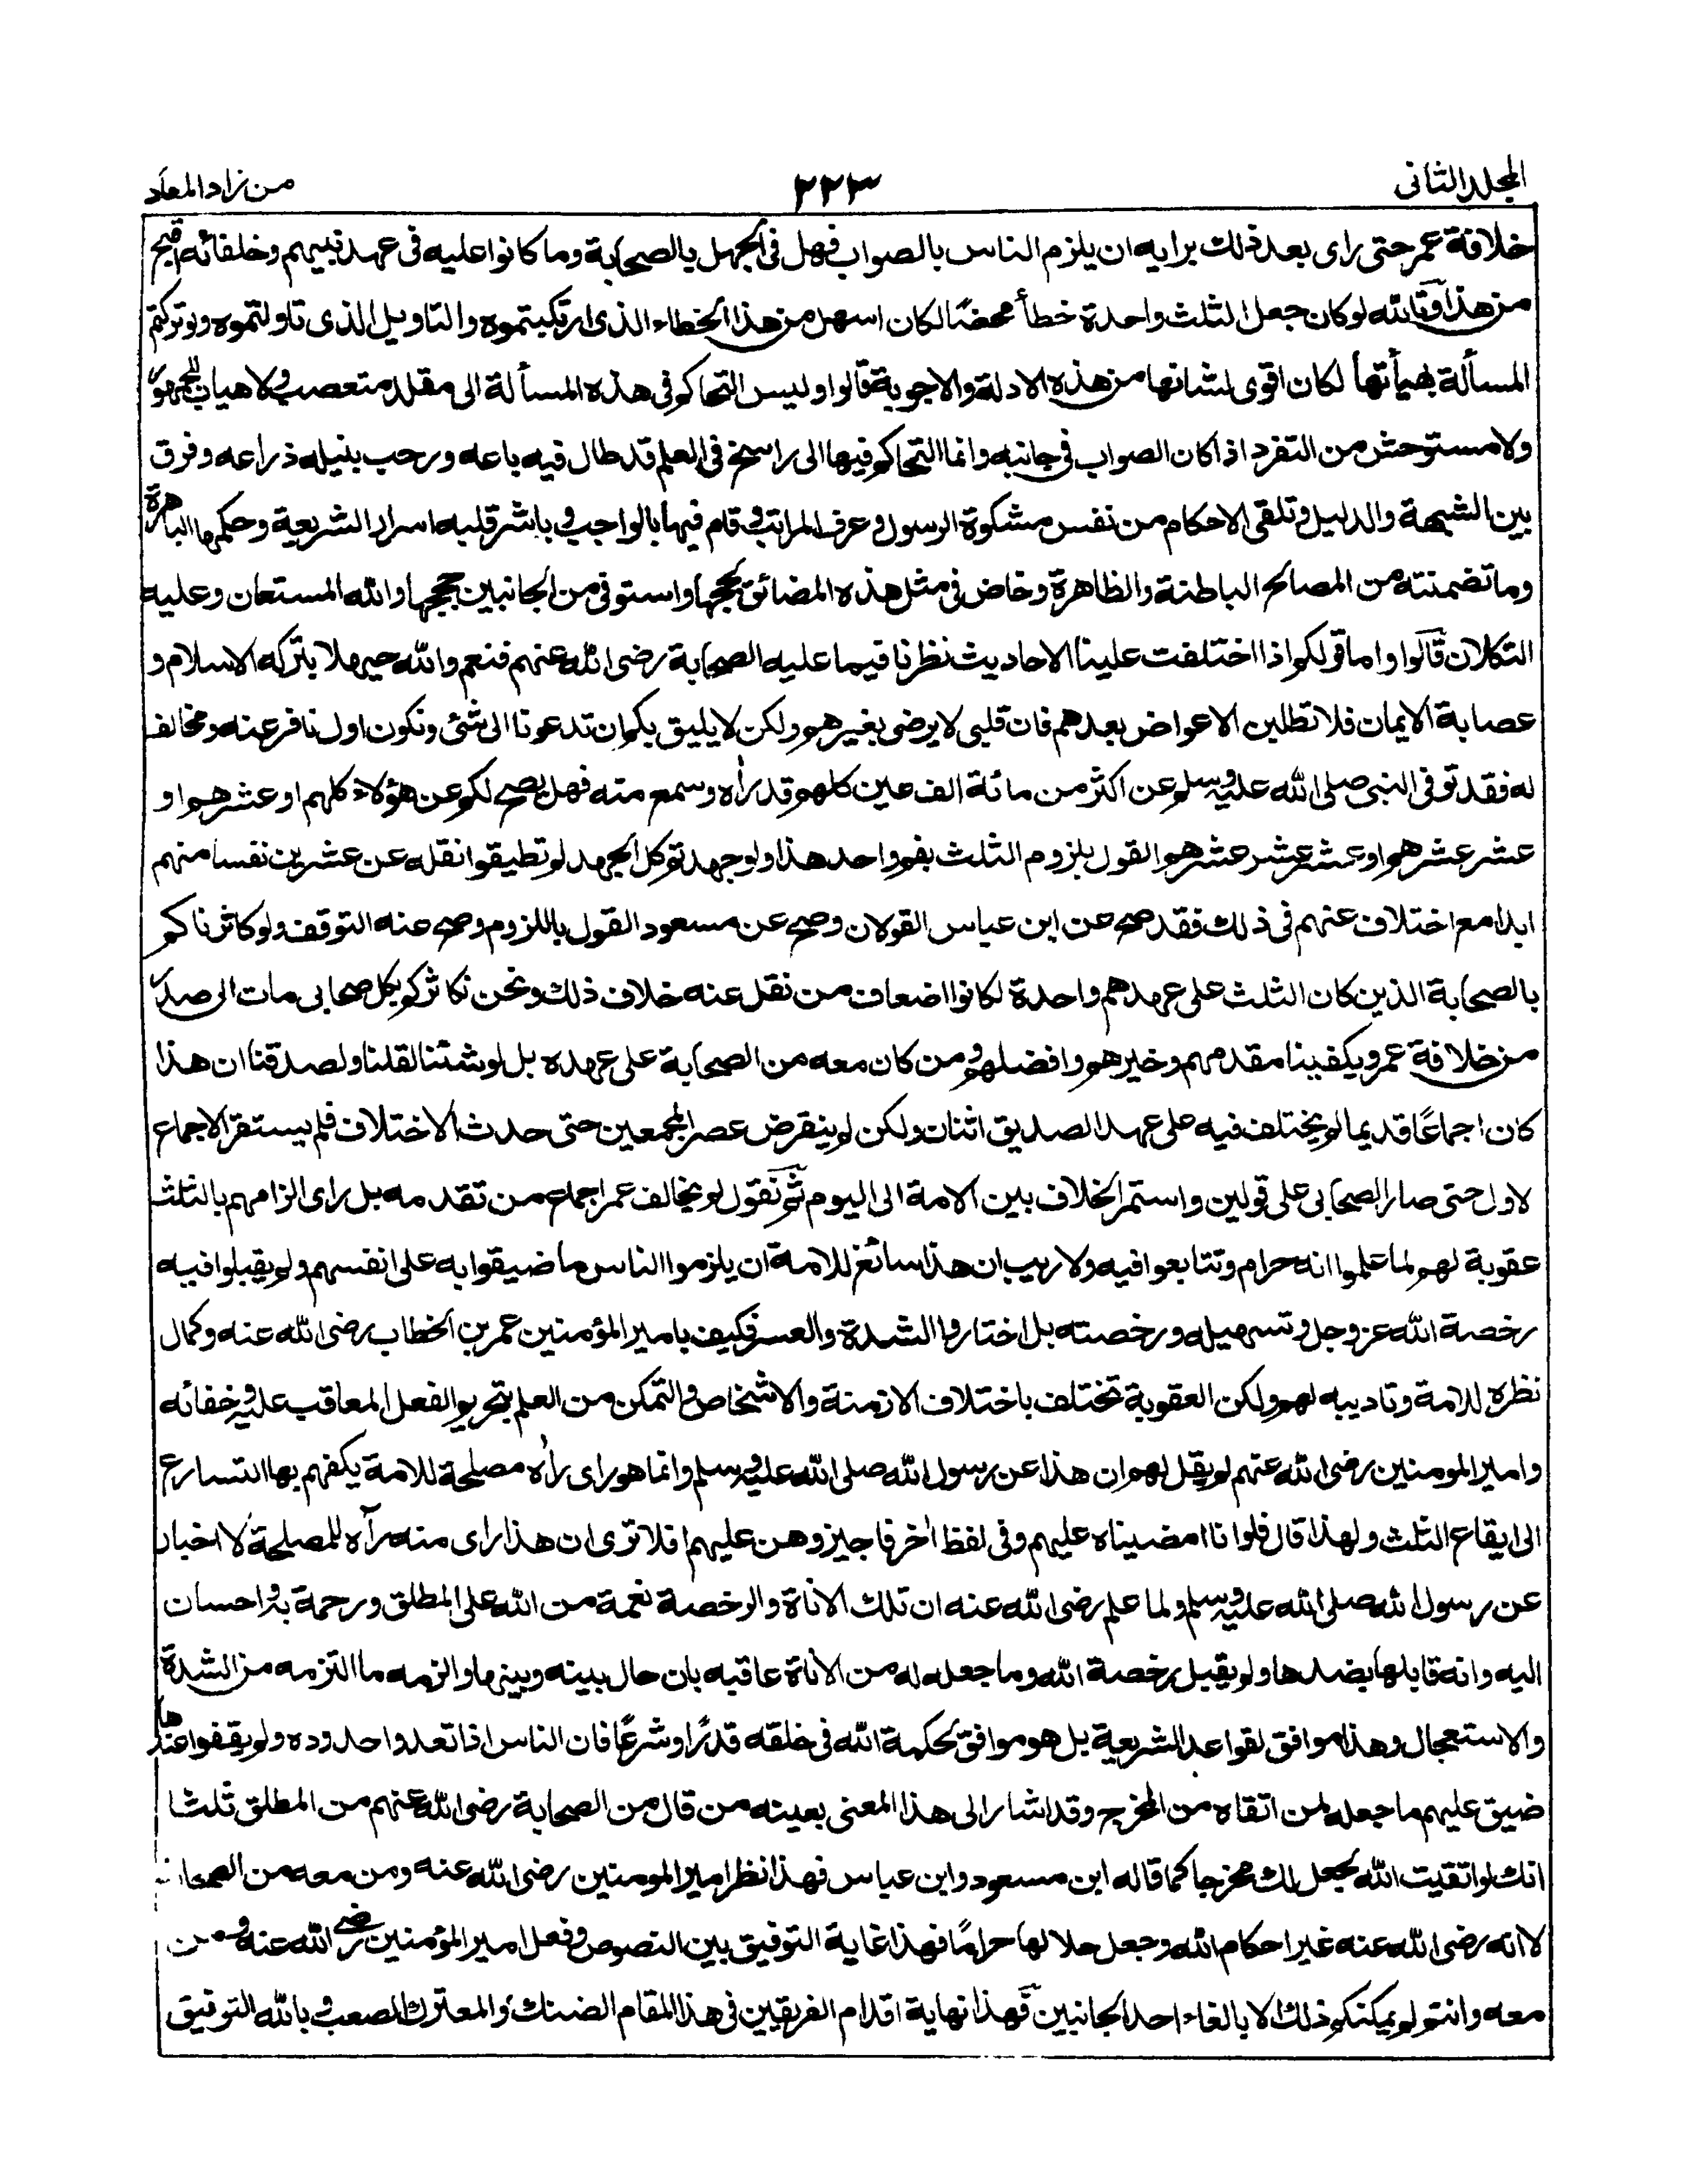 المجلد الثانى
٢٢٣
من زاد المعاد
خلافة عمر حتى راى بعد ذلك برايه ان يلزم الناس بالصواب فهل فى الجهل بالصحابة وما كانوا عليه فى عهد نبيهم وخلفائه اقبح
من هذا وتالله لو كان جعل الثلث واحدة خطأ محضا لكان اسهل من هذا الخطاء الذى ارتكبتموه والتاويل الذى تاولتموه ولو تركتم
المسألة بهيأتها لكان اقوى لشانها من هذه الادلة والاجوبة قالوا وليس التحاكم فى هذه المسألة الى مقلد متعصب ولا هياب للجمهور
ولا مستوحش من التفرد اذا كان الصواب فى جانبه وانما التحاكم فيها الى راسخ فى العلم قد طال فيه باعه ورحب بنيله ذراعه وفرق
بين الشبهة والدليل وتلقى الاحكام من نفس مشكوة الرسول وعرف المراتب وقام فيها بالواجب وباشر قلبه اسرار الشريعة وحكمها الباهرة
وما تضمنته من المصالح الباطنة والظاهرة وخاض فى مثل هذه المضائق لججها واستوفى من الجانبين حججها والله المستعان وعليه
التكلان قالوا واما قولكم اذا اختلفت علينا الاحاديث نظرنا فيما عليه الصحابة رضى الله عنهم فنعم والله حيهلا بتركه الاسلام و
عصابة الايمان فلا تطلبن الاعواض بعدهم فان قلبى لا يرضى بغيرهم ولكن لا يليق بكم ان تدعونا الى شئ وتكون اول نافر عنه ومخالف
له فقد توفى النبى صلى الله عليه وسلم عن اكثر من مائة الف عين كلهم قد رأه وسمع منه فهل يصح لكم عن هؤلاء كلهم او عشرهم او
عشر عشرهم او عشر عشر عشرهم القول بلزوم الثلث بفم واحد هذا ولو جهدتم كل الجهد لم تطيقوا نقله عن عشرين نفسا منهم
ابدا مع اختلاف عنهم فى ذلك فقد صح عن ابن عباس القولان وصح عن مسعود القول باللزوم وصح عنه التوقف ولو كاثرناكم
بالصحابة الذين كان الثلث على عهدهم واحدة لكانوا اضعاف من نقل عنه خلاف ذلك ونحن نكاثركم بكل صحابى مات الى صدر
من خلافة عمر ويكفينا مقدمهم وخيرهم وافضلهم ومن كان معه من الصحابة على عهده بل لو شئنا لقلنا ولصدقنا ان هذا
كان اجماعا قديما لم يختلف فيه على عهد الصديق اثنان ولكن لم ينقرض عصر المجمعين حتى حدث الاختلاف فلم يستقر الاجماع
لاول حتى صار الصحابى على قولين واستمر الخلاف بين الامة الى اليوم ثم نقول لم يخالف عمر اجماع من تقدمه بل راى الزامهم بالثلث
عقوبة لهم لما علموا انه حرام وتتابعوا فيه ولا ريب ان هذا سائغ للامة ان يلزموا الناس ما ضيقوا به على انفسهم ولم يقبلوا فيه
رخصة الله عز وجل وتسهيله ورخصته بل اختاروا الشدة والعسر فكيف بامير المؤمنين عمر بن الخطاب رضى الله عنه وكمال
نظره للامة وتاديبه لهم ولكن العقوبة تختلف باختلاف الازمنة والاشخاص والتمكن من العلم بتحريم الفعل المعاقب عليه وخفائه
وامير المومنين رضى الله عنهم لم يقل لهم ان هذا عن رسول الله صلى الله عليه وسلم وانما هو راى رأه مصلحة للامة يكفهم بها التسارع
الى ايقاع الثلث ولهذا قال فلو انا امضيناه عليهم وفى لفظ اخر فاجيزوهن عليهم افلا ترى ان هذا راى منه رآه للمصلحة لا اخبار
عن رسول الله صلى الله عليه وسلم ولما علم رضى الله عنه ان تلك الاناة والرخصة نعمة من الله على المطلق ورحمة به واحسان
اليه وانه قابلها بضدها ولم يقبل رخصة الله وما جعله له من الاناة عاقبه بان حال بينه وبينها والزمه ما التزمه من الشدة
والاستعجال وهذا موافق لقواعد الشريعة بل هو موافق لحكمة الله فى خلقه قدرا وشرعا فان الناس اذا تعدوا حدوده ولم يقفوا عندها
ضيق عليهم ما جعله لمن اتقاه من المخرج وقد اشار الى هذا المعنى بعينه من قال من الصحابة رضى الله عنهم من المطلق ثلثا
انك لو اتقيت الله لجعل لك مخرجا كما قاله ابن مسعود وابن عباس فهذا نظر امير المومنين رضى الله عنه ومن معه من الصحابة
لا انه رضى الله عنه غير احكام الله وجعل حلالها حراما فهذا غاية التوفيق بين النصوص وفعل امير المؤمنين رضى الله عنه ومن
معه وانتم لم يمكنكم ذلك الا بالغاء احد الجانبين فهذا نهاية اقدام الفريقين فى هذا المقام الضنك والمعترك الصعب وبالله التوفيق